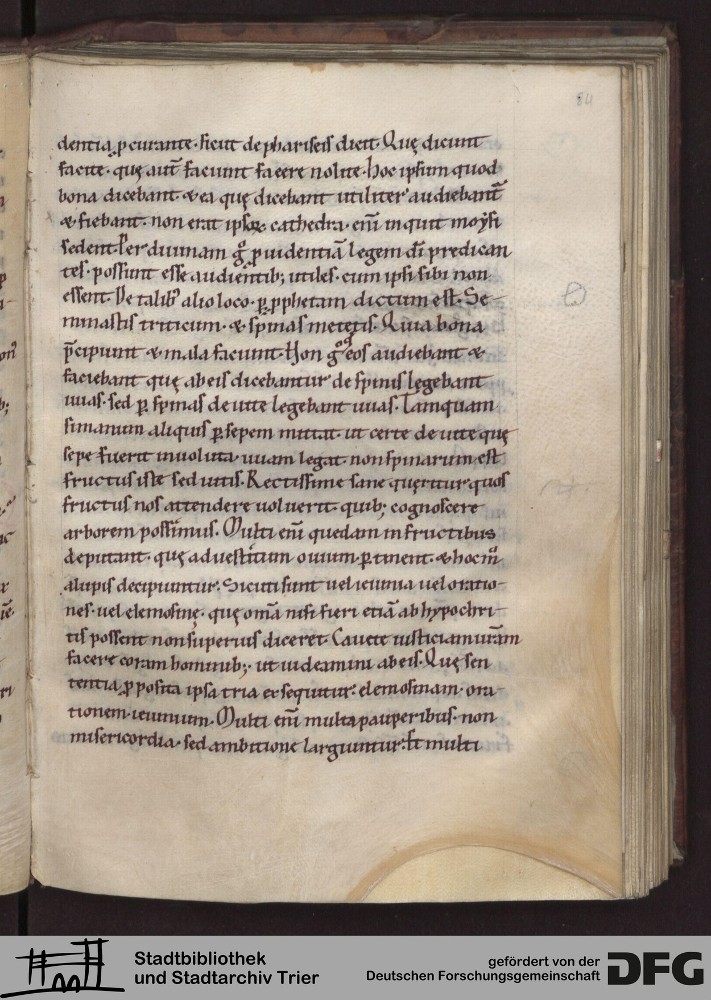 84
dentia, ꝓcurante. sicut de phariseis dicit. Quę dicunt
facite. quę aut̄ faciunt facere nolite. hoc ipsum quod
bona dicebant. & ea quę dicebant utiliter audiebant̄
& fiebant. non erat ipsoꝝ. cathedra. eni̅ inquit moysi
sedent. Per diuinam gͦ ꝓuidentiā legem dī predican
tes. possunt esse audientib; utiles. cum ipsi sibi non
essent. De talib' alio loco. ꝑ ꝓphetam dictum est. Se-
minastis triticum. & spinas metetis. Quia bona
p̄cipiunt & mala faciunt. Non gͦ eos audiebant &
faciebant quę ab eis dicebantur de spinis legebant
uuas. sed ꝑ spinas de uite legebant uuas. Tamquam
si manum aliquis ꝑ sepem mittat. ut certe de uite quę
sepe fuerit inuoluta uuam legat. non spinarum est
fructus iste sed uitis. Rectissime sane queritur quos
fructus nos attendere uoluerit. quib; cognoscere
arborem possimus. Multi eni̅ quedam in fructibus
deputant. quę ad uestitum ouium ꝑtinent. & hoc mͦ
a lupis decipiuntur. Sicuti sunt uel ieiunia uel oratio-
nes. uel elemosinę. quę om̄a nisi fieri etiā ab hypochri-
tis possent non superius diceret. Cauete iusticiam ur̄am
facere coram hominib;. ut uideamini ab eis. Qua sen
tentia, ꝓposita ipsa tria exsequitur. elemosinam. ora-
tionem. ieiunium. Multi eni̅ multa pauperibus. non
misericordia. sed ambitione largiuntur. Et multi
Stadtbibliothek
und Stadtarchiv Trier
gefördert von der
Deutschen Forschungsgemeinschaft
DFG